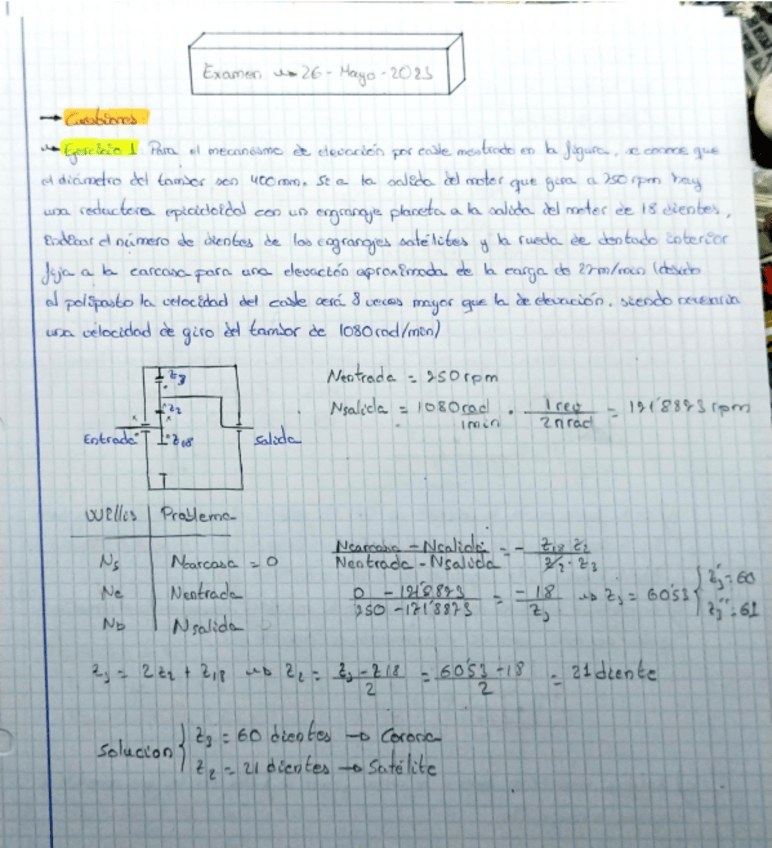 Examen ~> 26 - Mayo - 2023
→ Cuestiones:
~> Ejercicio 1 Para el mecanismo de elevación por cable mostrado en la figura, se conoce que
el diámetro del tambor son 400mm. Si a la salida del motor que gira a 250 rpm hay
una reductora epicicloidal con un engranaje planeta a la salida del motor de 18 dientes,
indicar el número de dientes de los engranajes satélites y la rueda de dentado interior
fija a la carcasa para una elevación aproximada de la carga de 27m/min (debido
al polipasto la velocidad del cable será 8 veces mayor que la de elevación, siendo necesaria
una velocidad de giro del tambor de 1080 rad/min)
Z3
Z2
Entrada
Z18
Salida
Nentrada = 250 rpm
Nsalida = 1080 rad / 1min · 1 rev / 2π rad = 171'8873 rpm
Willis | Problema
Ns | Ncarcasa = 0
Ne | Nentrada
Nb | Nsalida
Ncarcasa - Nsalida / Nentrada - Nsalida = - Z18 · Z2 / Z2 · Z3
0 - 171'8873 / 250 - 171'8873 = - 18 / Z3 ~> Z3 = 60'53 { Z3' = 60
Z3'' = 61
Z3 = 2Z2 + Z18 ~> Z2 = Z3 - Z18 / 2 = 60'53 - 18 / 2 = 21 diente
Solucion { Z3 = 60 dientes → Corona
Z2 = 21 dientes → Satélite